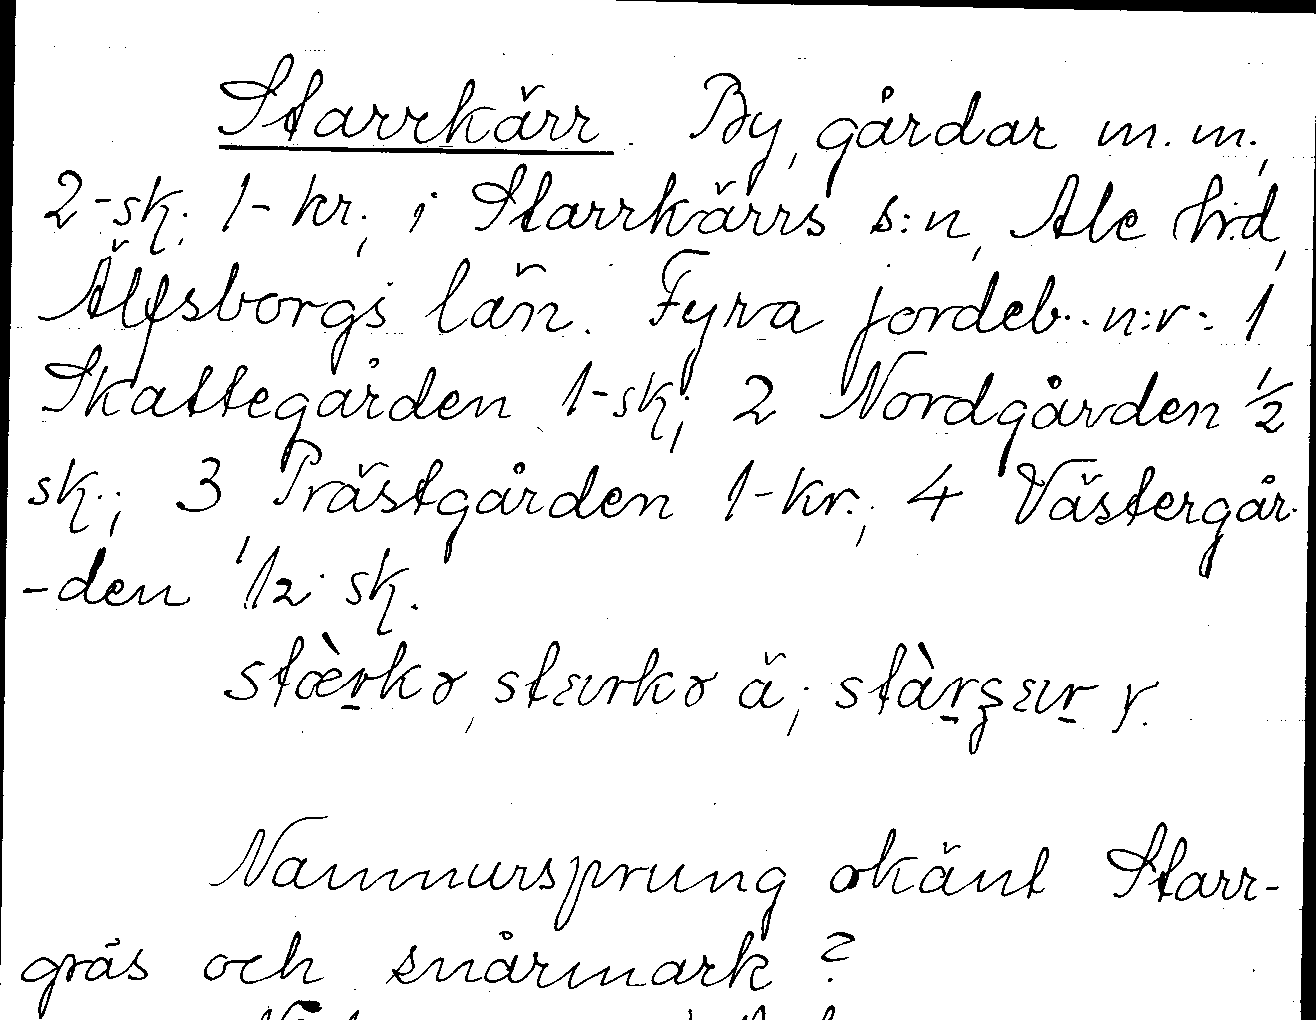 Starrkärr. By, gårdar m. m.,
2-sk.; 1-kr.; i Starrkärrs s:n, Ale h:d,
Älfsborgs län. Fyra jordeb. n:r: 1
Skattegården 1-sk; 2 Nordgården 1/2
sk.; 3 Prästgården 1-kr.; 4 Västergår-
-den 1/2 sk.
Namnursprung okänt Starr-
gräs och snårmark?